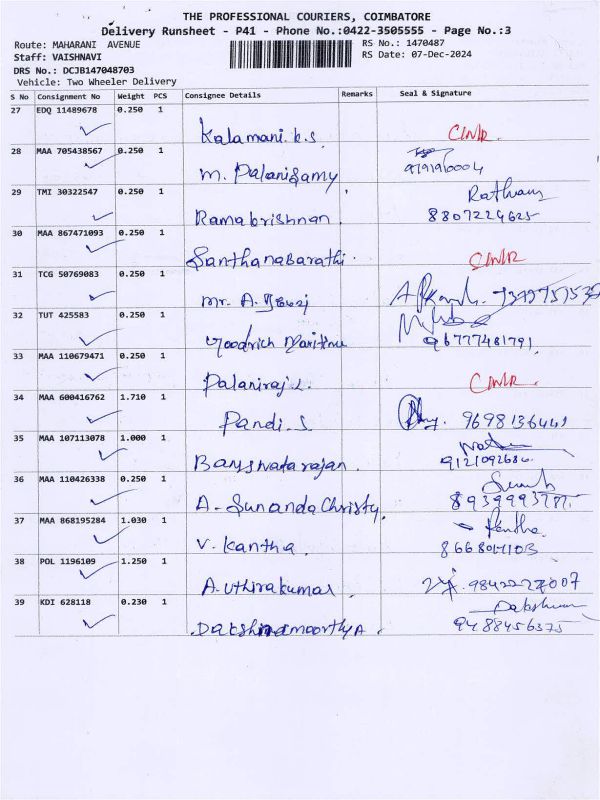 THE PROFESSIONAL COURIERS, COIMBATORE
Delivery Runsheet - P41 - Phone No.:0422-3505555 - Page No.:3
Route: MAHARANI AVENUE
RS No.: 1470487
Staff: VAISHNAVI
RS Date: 07-Dec-2024
DRS No.: DCJB147048703
Vehicle: Two Wheeler Delivery
S No Consignment No Weight PCS Consignee Details Remarks Seal & Signature
27 EDQ 11489678 0.250 1
Kalamani.k.s
28 MAA 705438567 0.250 1
M. Palanisamy
29 TMI 30322547 0.250 1
Ramakrishnan 8807224625
30 MAA 867471093 0.250 1
Santhanabarathi.
31 TCG 50769083 0.250 1
Mr. A.
32 TUT 425583 0.250 1
96777481791
33 MAA 110679471 0.250 1
Palaniraj.L.
34 MAA 600416762 1.710 1
Pandi.S 9698136441
35 MAA 107113078 1.000 1
9121092686
36 MAA 110426338 0.250 1
A. Sunanda Christy
37 MAA 868195284 1.030 1
V. Kantha.
38 POL 1196109 1.250 1
A. Uthirakumar
39 KDI 628118 0.230 1
Dakshinamoorthy A 9488456375